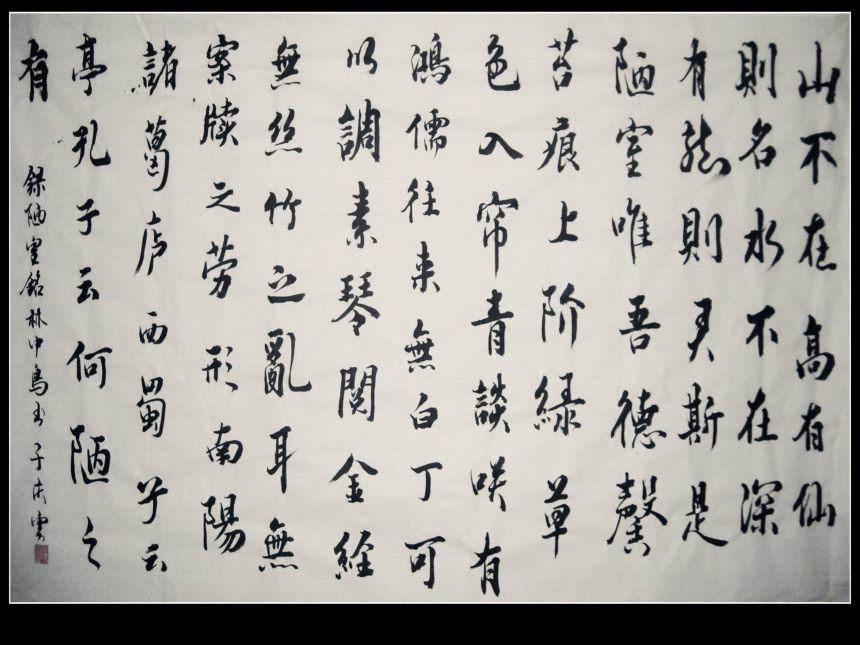 山不在高有仙
則名水不在深
有龍則灵斯是
陋室唯吾德馨
苔痕上阶緑草
色入帘青談咲有
鴻儒往来無白丁可
以調素琴閱金經
無丝竹之亂耳無
案牘之劳形南陽
諸葛庐西蜀子云
亭孔子云何陋之
有
録陋室銘林中鳥书